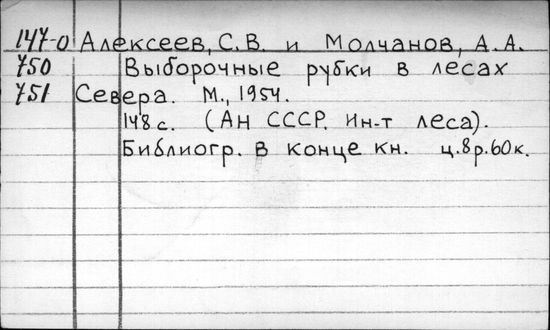 147-0 Алексеев, С. В. и Молчанов, А. А.
750 Выборочные рубки в лесах
751 Севера. М., 1954.
148 с. (Ан СССР. Ин-т леса).
Библиогр. в конце кн. ц. 8 р. 60 к.